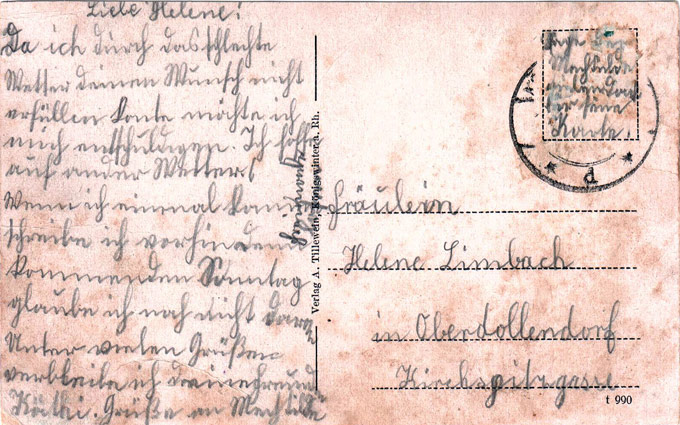 Liebe Helene!
Da ich durch das schlechte
Wetter deinen Wunsch nicht
erfüllen konte möchte ich
mich entschuldigen. Ich hoffe
auf ander Wetters
Wenn ich einmal kan
schreibe ich vorhin den
kommenden Sonntag
glaube ich noch nicht daran
Unter vielen Grüßen
verbleibe ich deine Freundin
Käthi. Grüße an Mechtilde
Verlag A. Tillewein, Königswinter a. Rh.
Mechtilde
für seine
Karte.
d
Fräulein
Helene Limbach
in Oberdollendorf
t 990